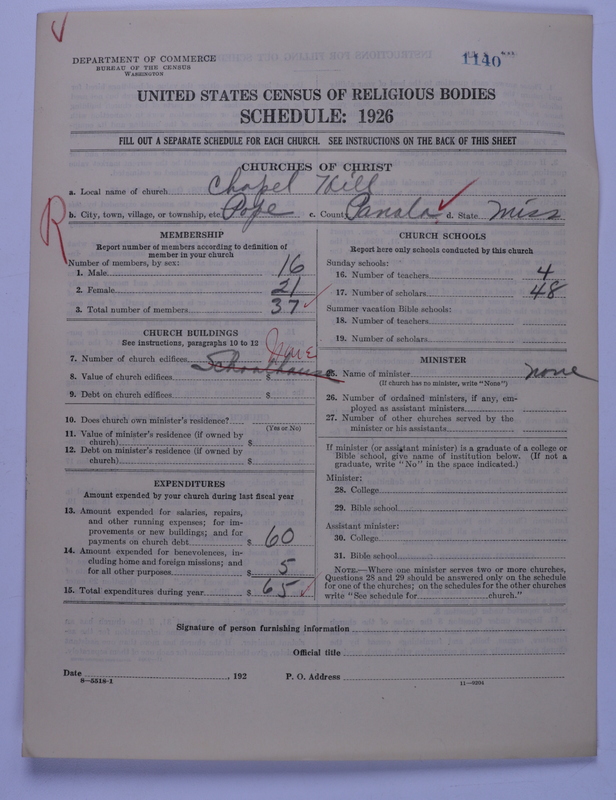 DEPARTMENT OF COMMERCE
BUREAU OF THE CENSUS
WASHINGTON
1140
UNITED STATES CENSUS OF RELIGIOUS BODIES
SCHEDULE: 1926
FILL OUT A SEPARATE SCHEDULE FOR EACH CHURCH. SEE INSTRUCTIONS ON THE BACK OF THIS SHEET
CHURCHES OF CHRIST
a. Local name of church Chapel Hill
b. City, town, village, or township, etc. Pope c. County Panola d. State Miss
R
MEMBERSHIP
Report number of members according to definition of
member in your church
Number of members, by sex:
1. Male 16
2. Female 21
3. Total number of members 37
CHURCH BUILDINGS
See instructions, paragraphs 10 to 12
7. Number of church edifices
8. Value of church edifices Schoolhouse $
9. Debt on church edifices $
10. Does church own minister's residence?
(Yes or No)
11. Value of minister's residence (if owned by
church) $
12. Debt on minister's residence (if owned by
church) $
EXPENDITURES
Amount expended by your church during last fiscal year
13. Amount expended for salaries, repairs,
and other running expenses; for im-
provements or new buildings; and for
payments on church debt $ 60
14. Amount expended for benevolences, in-
cluding home and foreign missions; and
for all other purposes $ 5
15. Total expenditures during year $ 65
CHURCH SCHOOLS
Report here only schools conducted by this church
Sunday schools:
16. Number of teachers 4
17. Number of scholars 48
Summer vacation Bible schools:
18. Number of teachers
19. Number of scholars
MINISTER
25. Name of minister none
(If church has no minister, write "None")
26. Number of ordained ministers, if any, em-
ployed as assistant ministers
27. Number of other churches served by the
minister or his assistants
If minister (or assistant minister) is a graduate of a college or
Bible school, give name of institution below. (If not a
graduate, write "No" in the space indicated.)
Minister:
28. College
29. Bible school
Assistant minister:
30. College
31. Bible school
NOTE.—Where one minister serves two or more churches,
Questions 28 and 29 should be answered only on the schedule
for one of the churches; on the schedules for the other churches
write "See schedule for church."
Signature of person furnishing information
Official title
Date , 192 P. O. Address
8—5318-1
11—9304